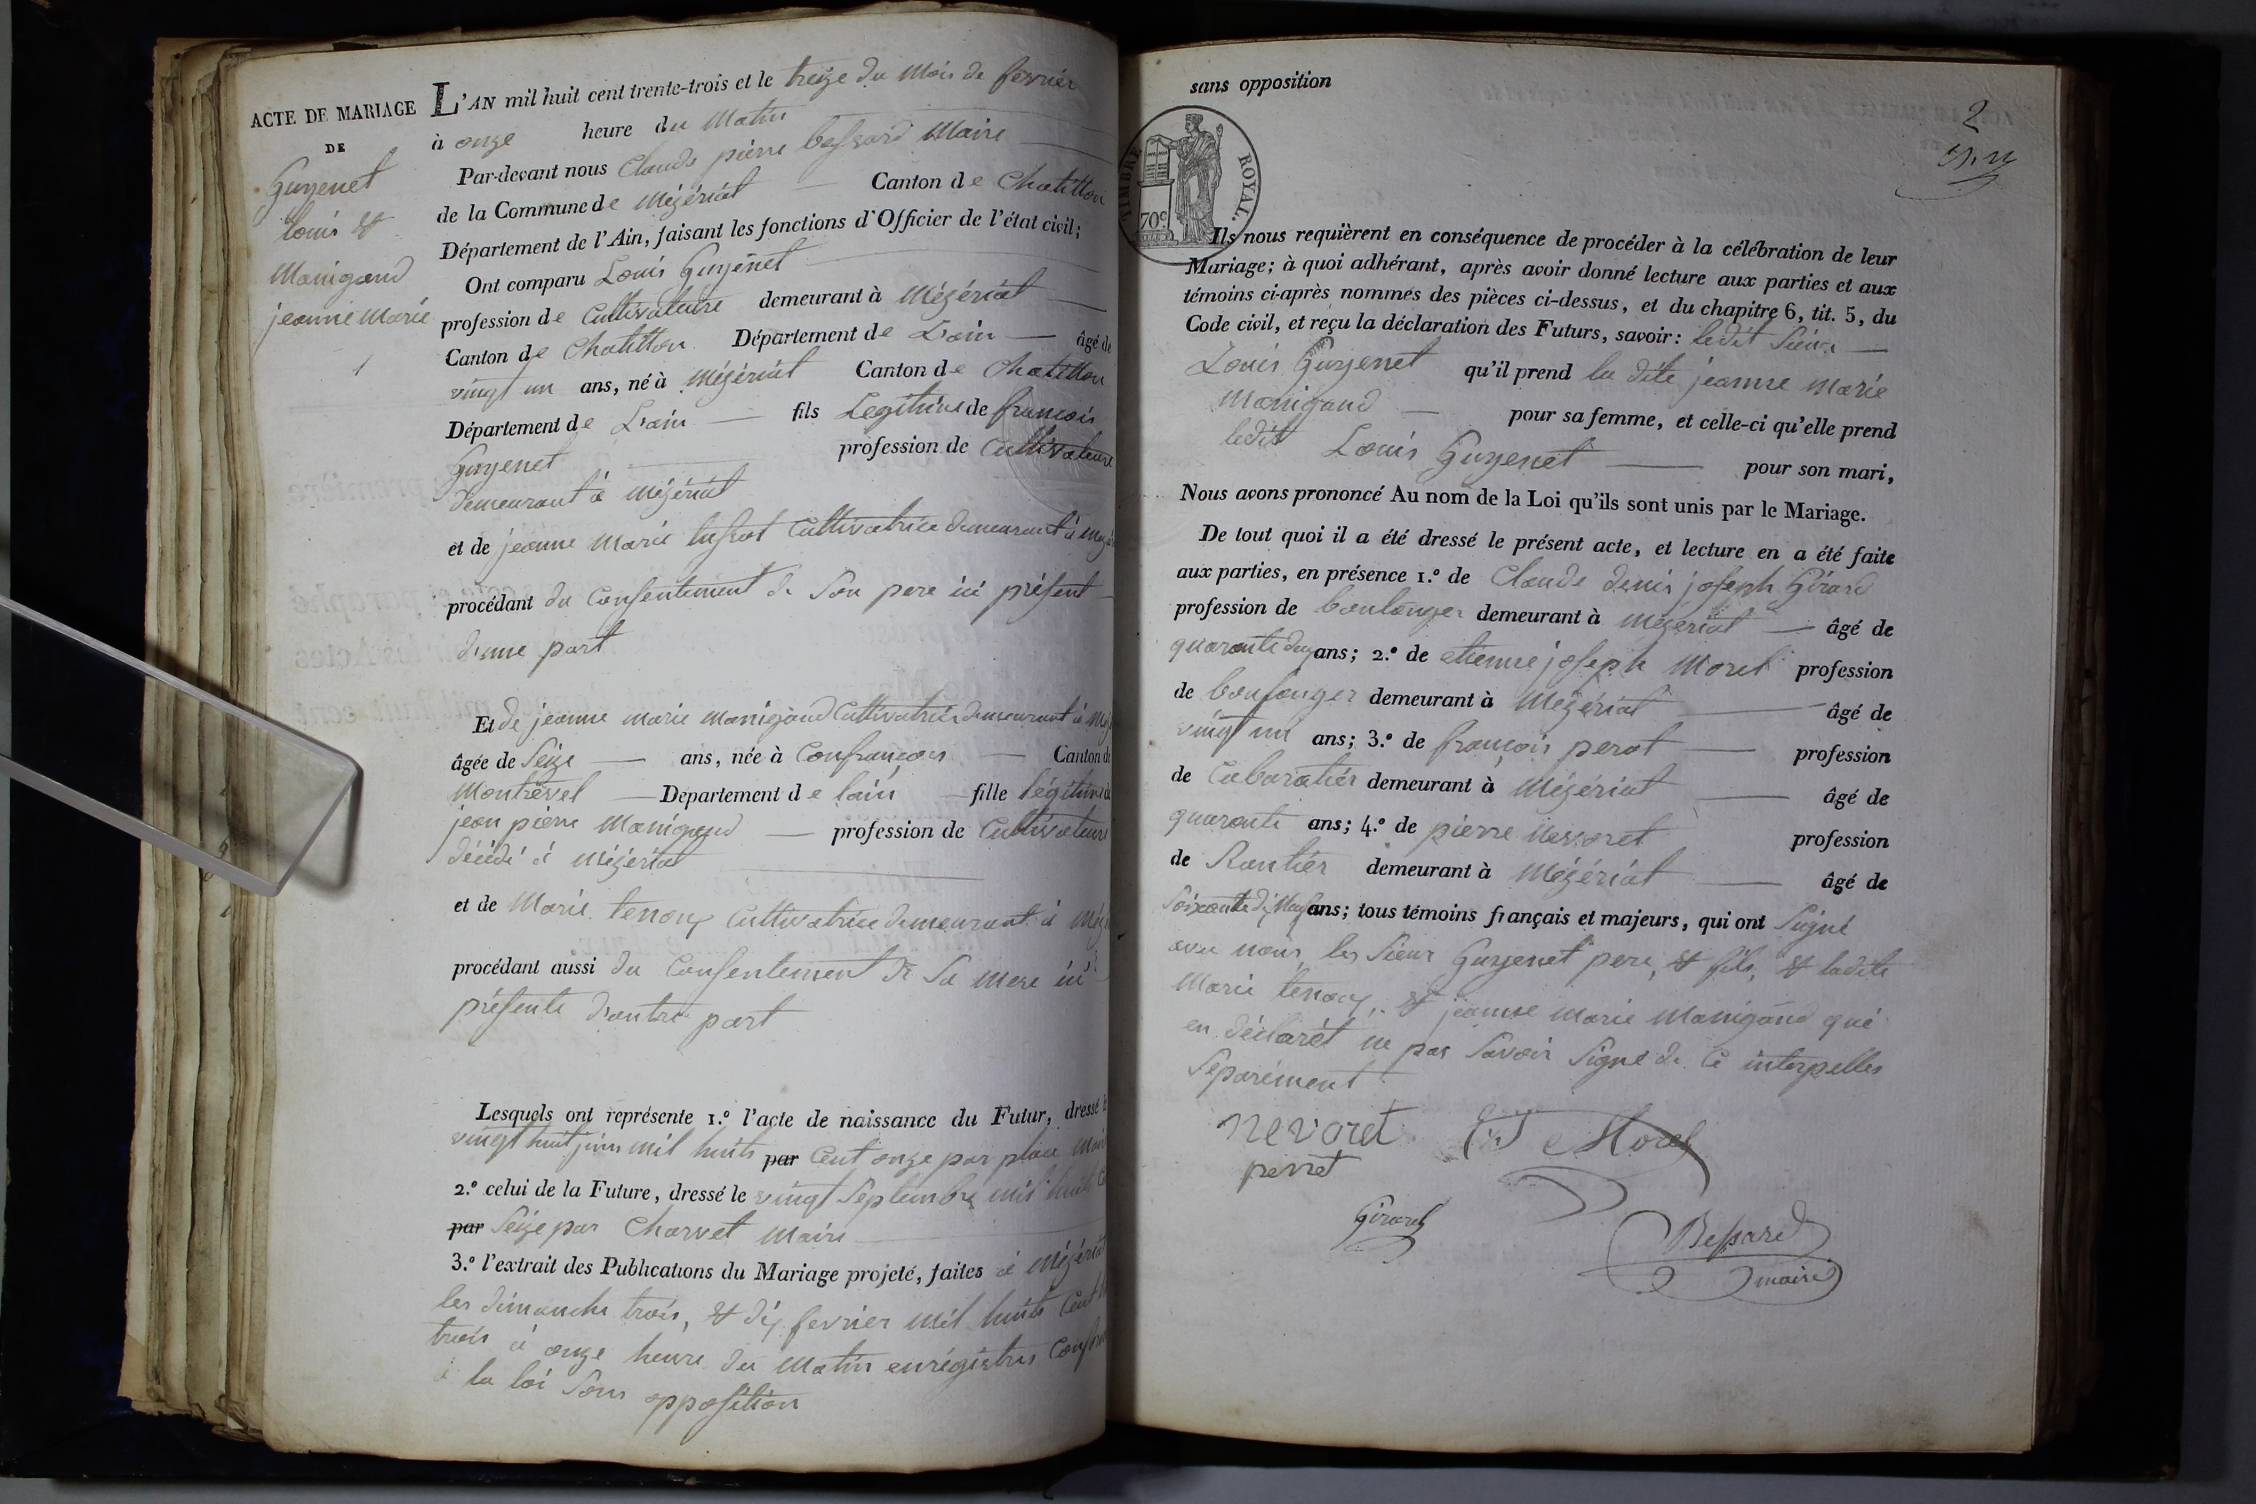 ACTE DE MARIAGE
DE
Guyenet
Louis &
Manigand
jeanne Marie
1
L'AN mil huit cent trente-trois et le treize du Mois de fevrier
à onze heure du Matin
Par-devant nous Claude pierre Bessard Maire
de la Commune de Mézériat Canton de Chatillon
Département de l'Ain, faisant les fonctions d'Officier de l'état civil;
Ont comparu Louis Guyenet
profession de Cultivateure demeurant à Mézériat
Canton de Chatillon Département de L'ain âgé de
vingt un ans, né à Mézériat Canton de Chatillon
Département de L'ain fils Legitime de françois
Guyenet profession de Cultivateure
demeurant à Mézériat
et de jeanne Marie Cultivatrice demeurant à
procédant du Consentement de Son pere ici présent
d'une part
Et de jeanne marie manigand Cultivatrice demeurant à
âgée de Seize ans, née à Confrançon Canton de
Montrevel Département de lain fille légitime de
jean pierre Manigand profession de Cultivateure
décédé à Mézériat
et de Marie tenoux Cultivatrice demeurant à
procédant aussi du Consentement de Sa mere ici
présente d'autre part
Lesquels ont représente 1.º l'acte de naissance du Futur, dressé
vingt huit juin mil huits par Cent onze par
2.º celui de la Future, dressé le vingt Septembre mil huit
par Seize par Charvet Maire
3.º l'extrait des Publications du Mariage projeté, faites à Mézériat
les dimanche trois, & dix fevrier mil huits Cent
trois à onze heure du Matin enrégistres
à la loi Sans opposition
sans opposition
2
TIMBRE ROYAL.
70 c.
Ils nous requièrent en conséquence de procéder à la célébration de leur
Mariage; à quoi adhérant, après avoir donné lecture aux parties et aux
témoins ci-après nommés des pièces ci-dessus, et du chapitre 6, tit. 5, du
Code civil, et reçu la déclaration des Futurs, savoir: ledit Sieur
Louis Guyenet qu'il prend la dite jeanne marie
Manigand pour sa femme, et celle-ci qu'elle prend
ledit Louis Guyenet pour son mari,
Nous avons prononcé Au nom de la Loi qu'ils sont unis par le Mariage.
De tout quoi il a été dressé le présent acte, et lecture en a été faite
aux parties, en présence 1.º de Claude denis joseph Girard
profession de boulanger demeurant à Mézériat âgé de
quarante deux ans; 2.º de etienne joseph Morel profession
de boulanger demeurant à Mézériat âgé de
vingt un ans; 3.º de françois perat profession
de Cabaratier demeurant à Mézériat âgé de
quarante ans; 4.º de pierre nevoret profession
de Rantier demeurant à Mézériat âgé de
Soixante dix ans; tous témoins français et majeurs, qui ont Signé
avec nous, les Sieur Guyenet pere, & fils, & ladite
Marie tenoux, & jeanne marie Manigand qui
en déclarét ne pas Savoir Signé de Ce interpelles
Séparément
nevoret Morel
perret
Girard
Bessard
maire